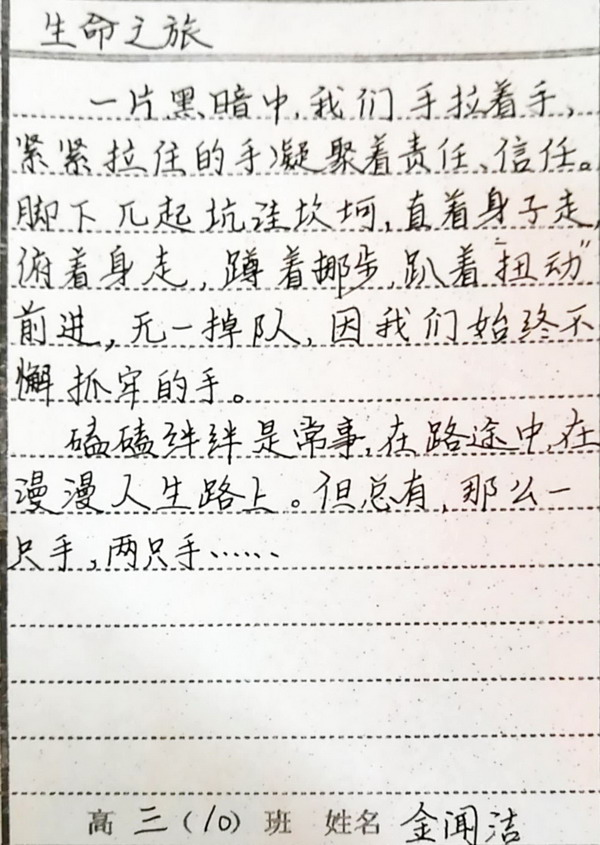 生命之旅
一片黑暗中,我们手拉着手,
紧紧拉住的手凝聚着责任、信任。
脚下兀起坑洼坎坷,直着身子走,
俯着身走,蹲着挪步,趴着"扭动"
前进,无一掉队,因我们始终不
懈抓牢的手。
磕磕绊绊是常事,在路途中,在
漫漫人生路上。但总有,那么一
只手,两只手……
高三(10)班 姓名 金闻洁